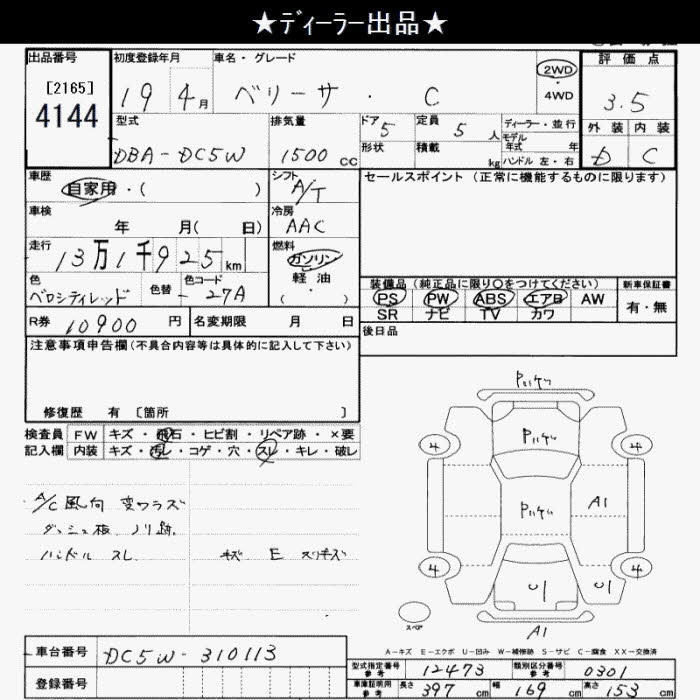 ★ディーラー出品★
出品番号
[2165]
4144
初度登録年月
19 4月
車名・グレード
ベリーサ・ C
2WD
・
4WD
評価点
3.5
外装 内装
D C
型式
DBA-DC5W
排気量
1500 CC
ドア 5
形状
定員 5 人
積載 kg
ディーラー・並行
モデル
年式 年
ハンドル 左・右
車歴
自家用・( )
シフト
A/T
セールスポイント (正常に機能するものに限ります)
車検
年 月( 日)
冷房
AAC
走行
13万1千925km
燃料
ガソリン
軽油
・
( )
色
ベロシティレッド
色替
色コード
27A
装備品 (純正品に限り○をつけてください)
PS PW ABS エアB AW
SR ナビ TV カワ
新車保証書
有・無
R券 10900 円
名変期限 月 日
後日品
注意事項申告欄(不具合内容等は具体的に記入して下さい)
修復歴 有 〔箇所 〕
検査員
記入欄
FW キズ・飛石・ヒビ割・リペア跡・×要
内装 キズ・汚レ・コゲ・穴・スレ・キレ・破レ
A/C風向 変ワラズ
ダッシュ板 ノリ跡.
ハンドル スレ
キズ E スリキズ
4
4
4
4
A1
U1
U1
A1
スペア
A-キズ E-エクボ U-凹み W-補修跡 S-サビ C-腐食 XX-交換済
車台番号 DC5W-310113
登録番号
型式指定番号
参考
12473
類別区分番号
参考
0301
車庫証明用
参考
長さ 397 cm
幅 169 cm
高さ 153 cm